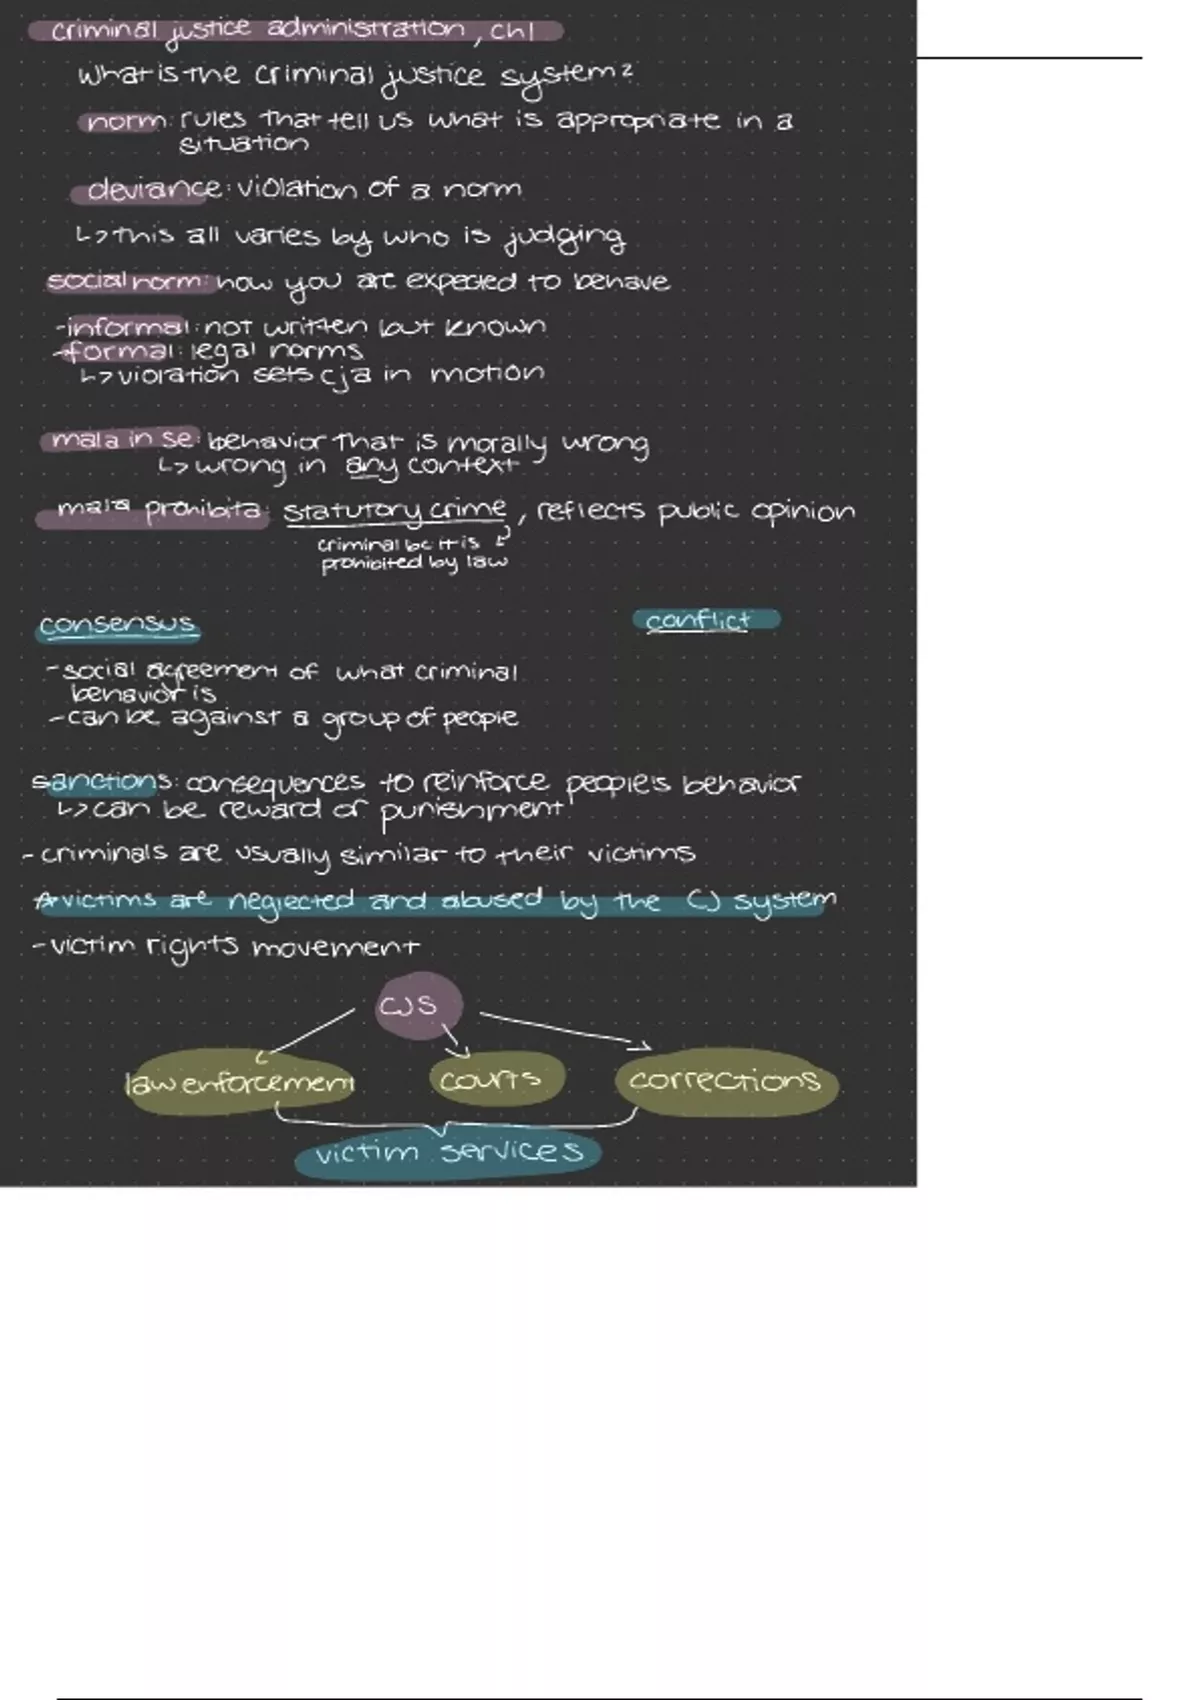 criminal justice administration, ch1
What is the criminal justice system?
norm: rules that tell us what is appropriate in a
situation
deviance: violation of a norm
↳this all varies by who is judging
social norm: how you are expected to behave
-informal: not written but known
-formal: legal norms
↳violation sets cja in motion
mala in se: behavior that is morally wrong
↳wrong in any context
mala prohibita: statutory crime, reflects public opinion
criminal bc it is
prohibited by law
consensus conflict
-social agreement of what criminal
behavior is
-can be against a group of people
sanctions: consequences to reinforce people's behavior
↳can be reward or punishment
-criminals are usually similar to their victims
☆victims are neglected and abused by the CJ system
-victim rights movement
CJS
law enforcement courts corrections
victim services